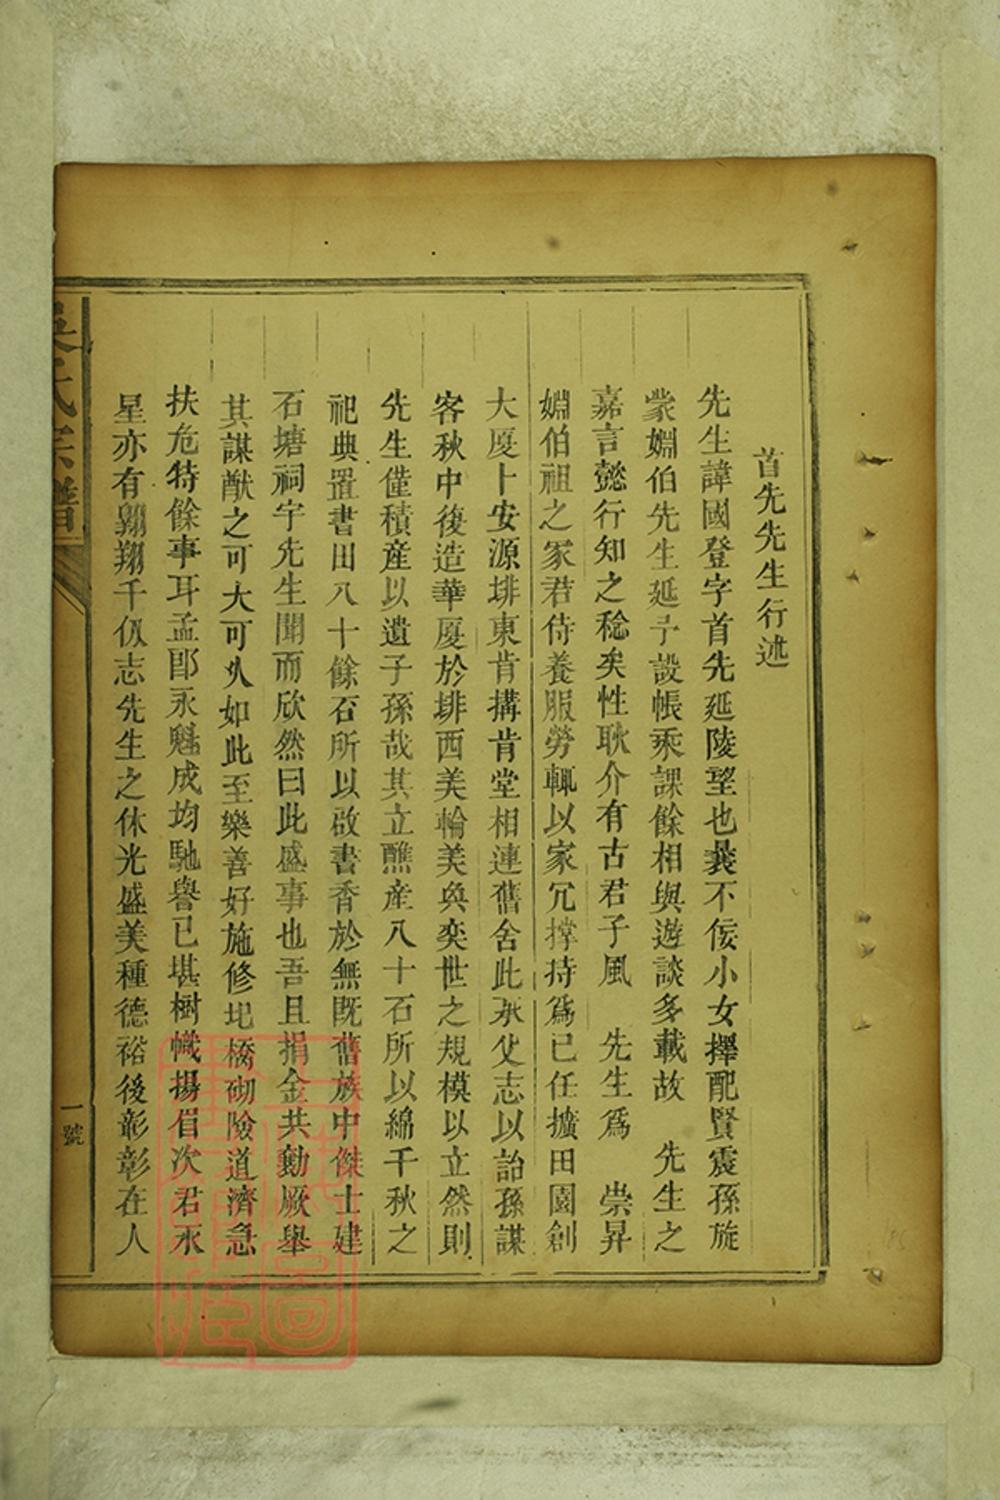 首先先生行述
先生諱國登字首先延陵望也曩不佞小女擇配賢震孫旋
蒙嫺伯先生延予設帳乘課餘相與遊談多載故　先生之
嘉言懿行知之稔矣性耿介有古君子風　先生爲　崇昇
嫺伯祖之冢君侍養服勞輒以家冗撐持爲已任擴田園創
大廈卜安源埱東肯搆肯堂相連舊舍此承父志以詒孫謀
客秋中復造華廈於埱西美輪美奐奕世之規模以立然則
先生僅積産以遺子孫哉其立醮産八十石所以綿千秋之
祀典置書田八十餘石所以啟書香於無既舊族中傑士建
石塘祠宇先生聞而欣然曰此盛事也吾且捐金共勷厥舉
其謀猷之可大可久如此至樂善好施修圯橋砌險道濟急
扶危特餘事耳孟郎永魁成均馳譽已堪樹幟揚眉次君永
星亦有翺翔千仭志先生之休光盛美種德裕後彰彰在人
吳氏宗譜
一號